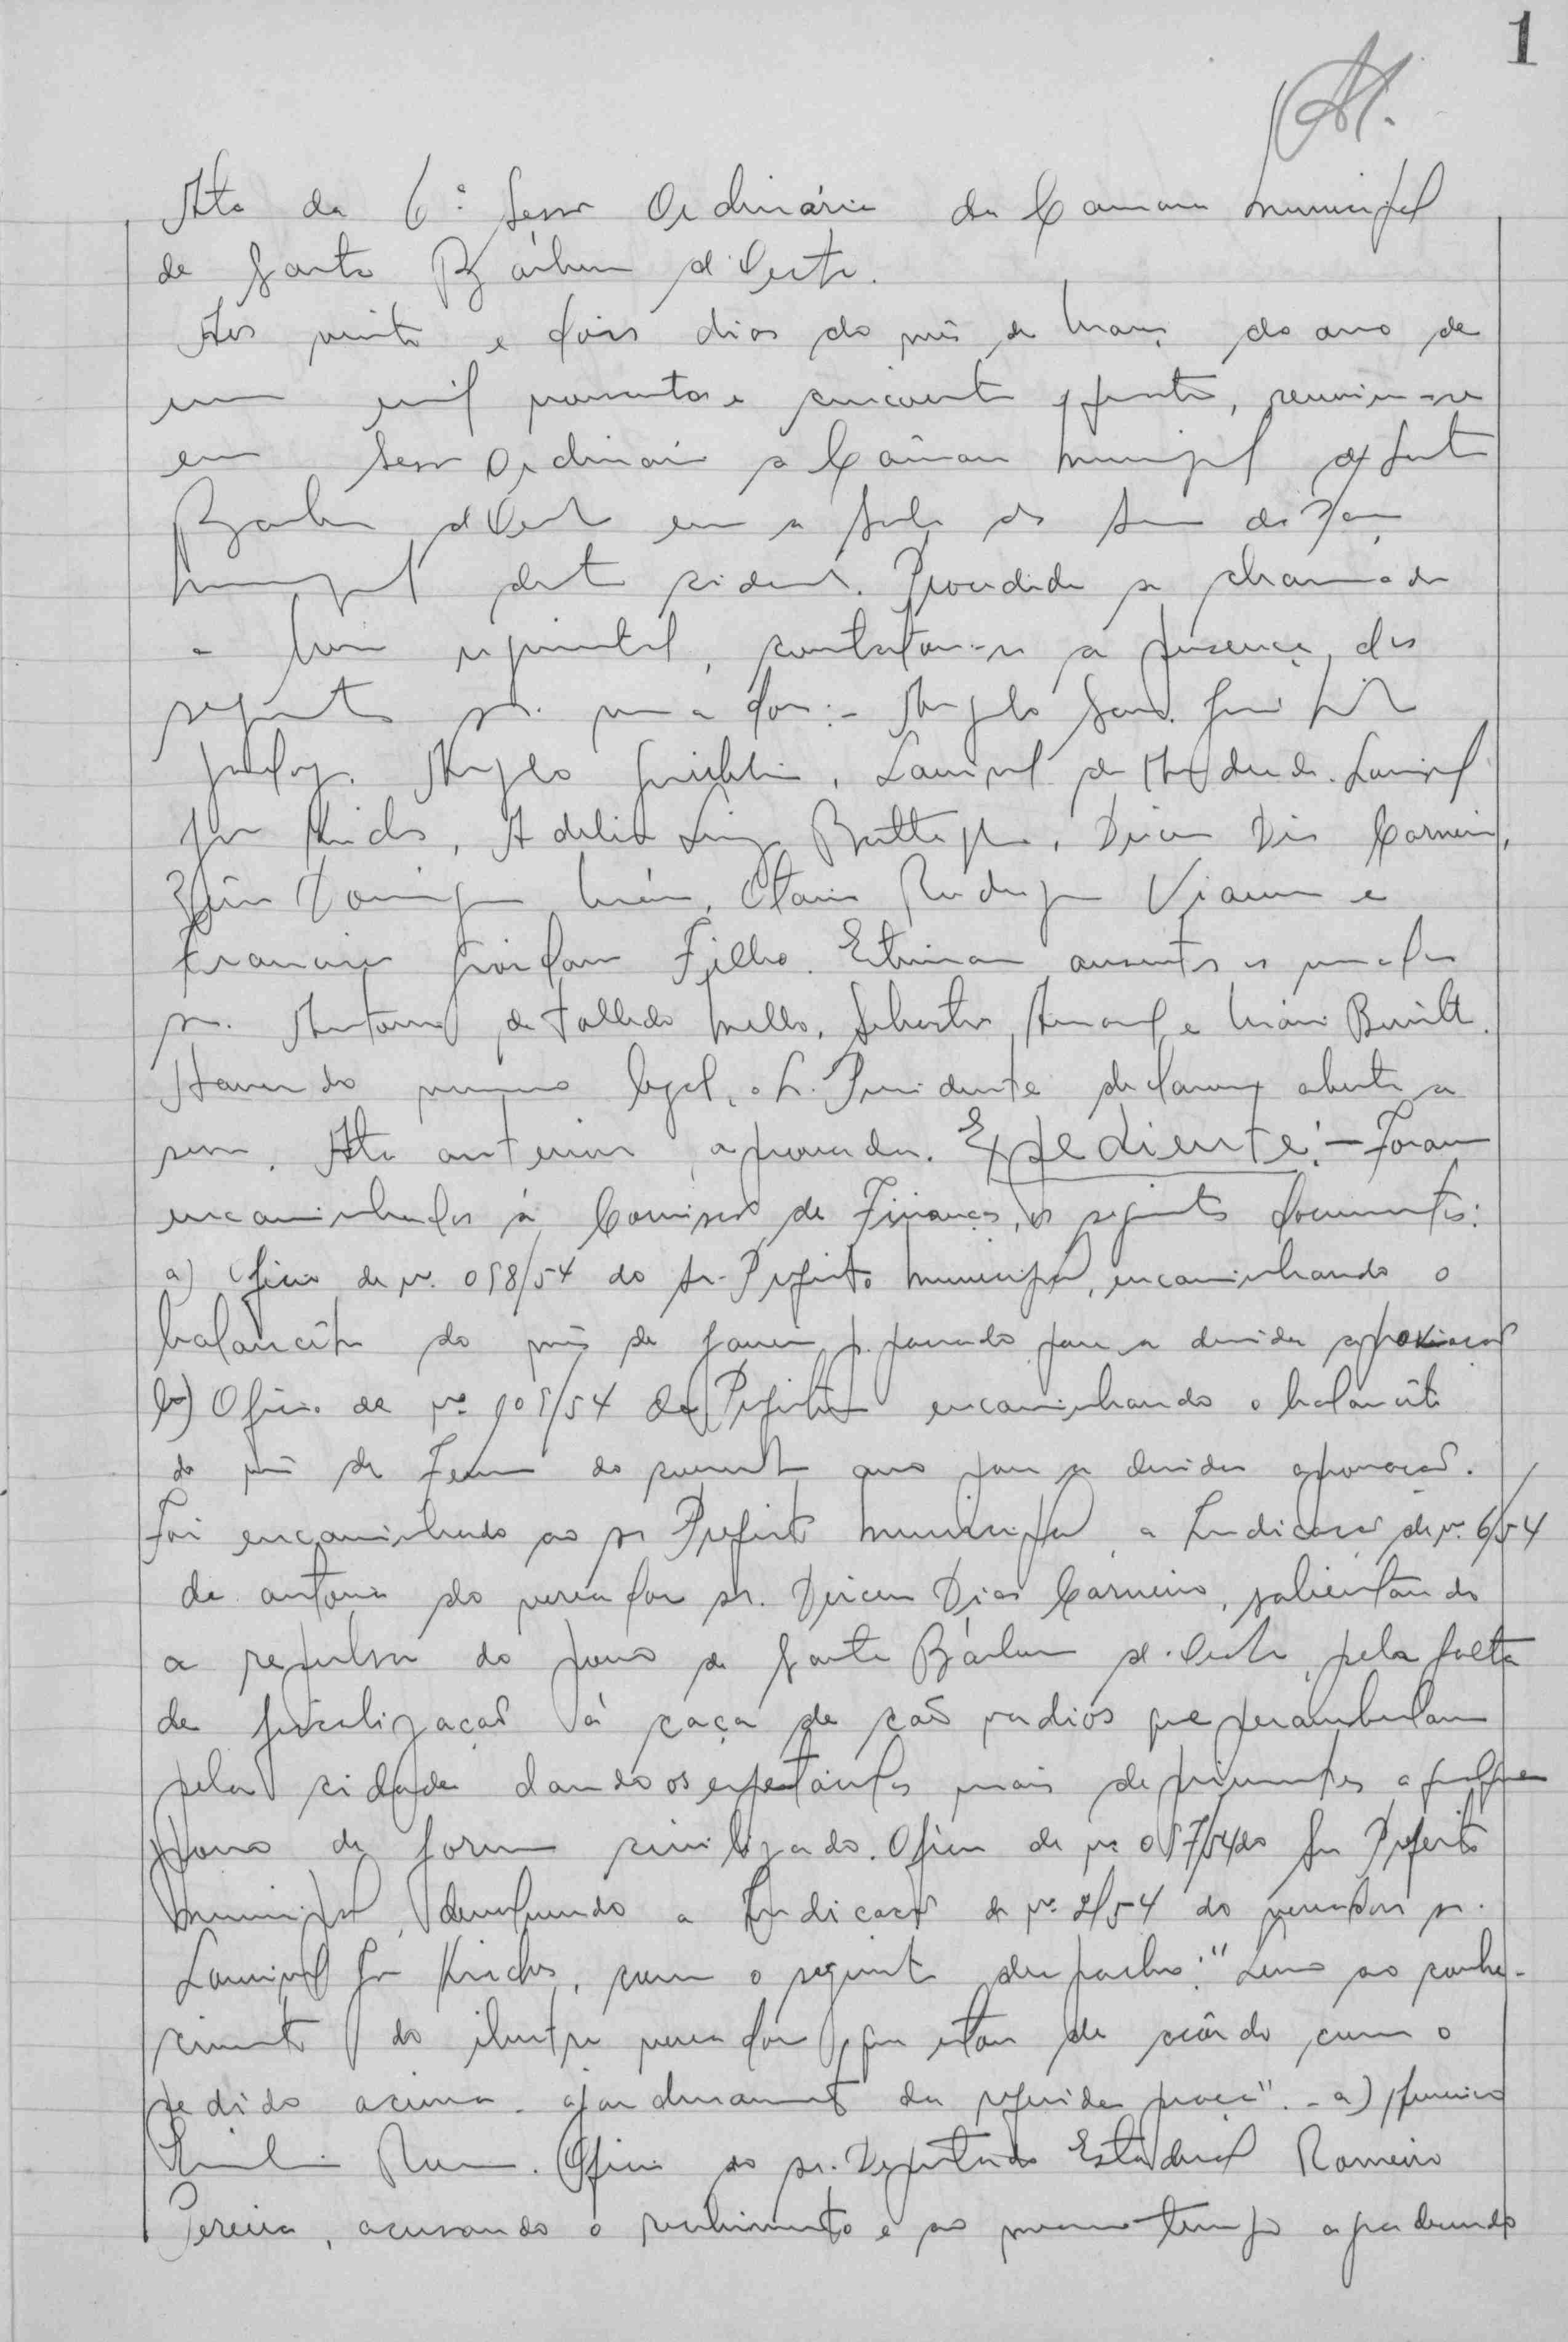 1
Ata da 6ª Sessão Ordinária da Camara Municipal
de Santa Bárbara d'Oeste.
Aos vinte e dois dias do mês de Março do ano de
um mil novecentos e cincoenta e quatro, reuniu-se
em Sessão Ordinária a Câmara Municipal de Santa
Barbara d'Oeste em a sala do
Municipal desta cidade. Procedida a chamada
a hora regimental, constatou-se a presença dos
seguintes srs. vereadores:- Angelo
Angelo Giubbina, Laurival de Laurival
, Adelio Luiz Dirceu Dias Carneiro,
Domingues Otavio Rodrigues Viana e
Francisco Giordano Filho. Estiveram ausentes os vereadores
srs. Antonio de Tolledo Mello, Sebastião Amaral e
Havendo numero legal, o Sr. Presidente declarou aberta a
sessão. Ata anterior aprovada. Expediente:- Foram
encaminhados à Comissão de Finanças, os seguintes documentos:
a) Oficio de nº. 058/54 do Sr. Prefeito Municipal, encaminhando o
balancête do mês de Janeiro p. passado para a devida aprovação
b) Oficio de nº 105/54 da Prefeitura encaminhando o balancête
do mês de Fevereiro do corrente ano para a devida aprovação.
Foi encaminhado ao sr Prefeito Municipal a Indicação de nº. 6/54
de autoria do vereador sr. Dirceu Dias Carneiro, salientando
a repulsa do povo de Santa Bárbara d'Oeste, pela falta
de fiscalização á caça de cães vadios que perambulam
pela cidade dando os espetáculos mais deprimentes a qualquer
povo de forum civilizado. Oficio de nº 057/54 do Snr Prefeito
Municipal, devolvendo a Indicação de nº 2/54 do vereador sr.
Laurival com o seguinte despacho: "Levo ao conhe-
cimento do ilustre vereador que estou de acôrdo com o
pedido acima - ajardinamento da referida praça". - a)
Oficio do sr. Deputado Estadual Romeiro
Pereira, acusando o recebimento e ao mesmo tempo agradecendo